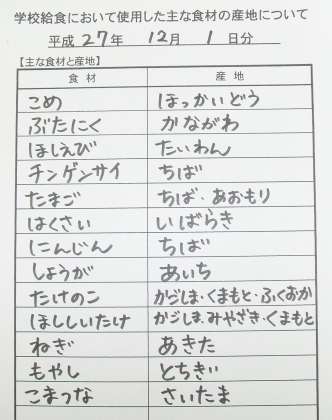 学校給食において使用した主な食材の産地について
平成 27年 12月 1 日分
【主な食材と産地】
食材 産地
こめ ほっかいどう
ぶたにく かながわ
ほしえび たいわん
チンゲンサイ ちば
たまご ちば・あおもり
はくさい いばらき
にんじん ちば
しょうが あいち
たけのこ かごしま・くまもと・ふくおか
ほししいたけ かごしま・みやざき・くまもと
ねぎ あきた
もやし とちぎ
こまつな さいたま